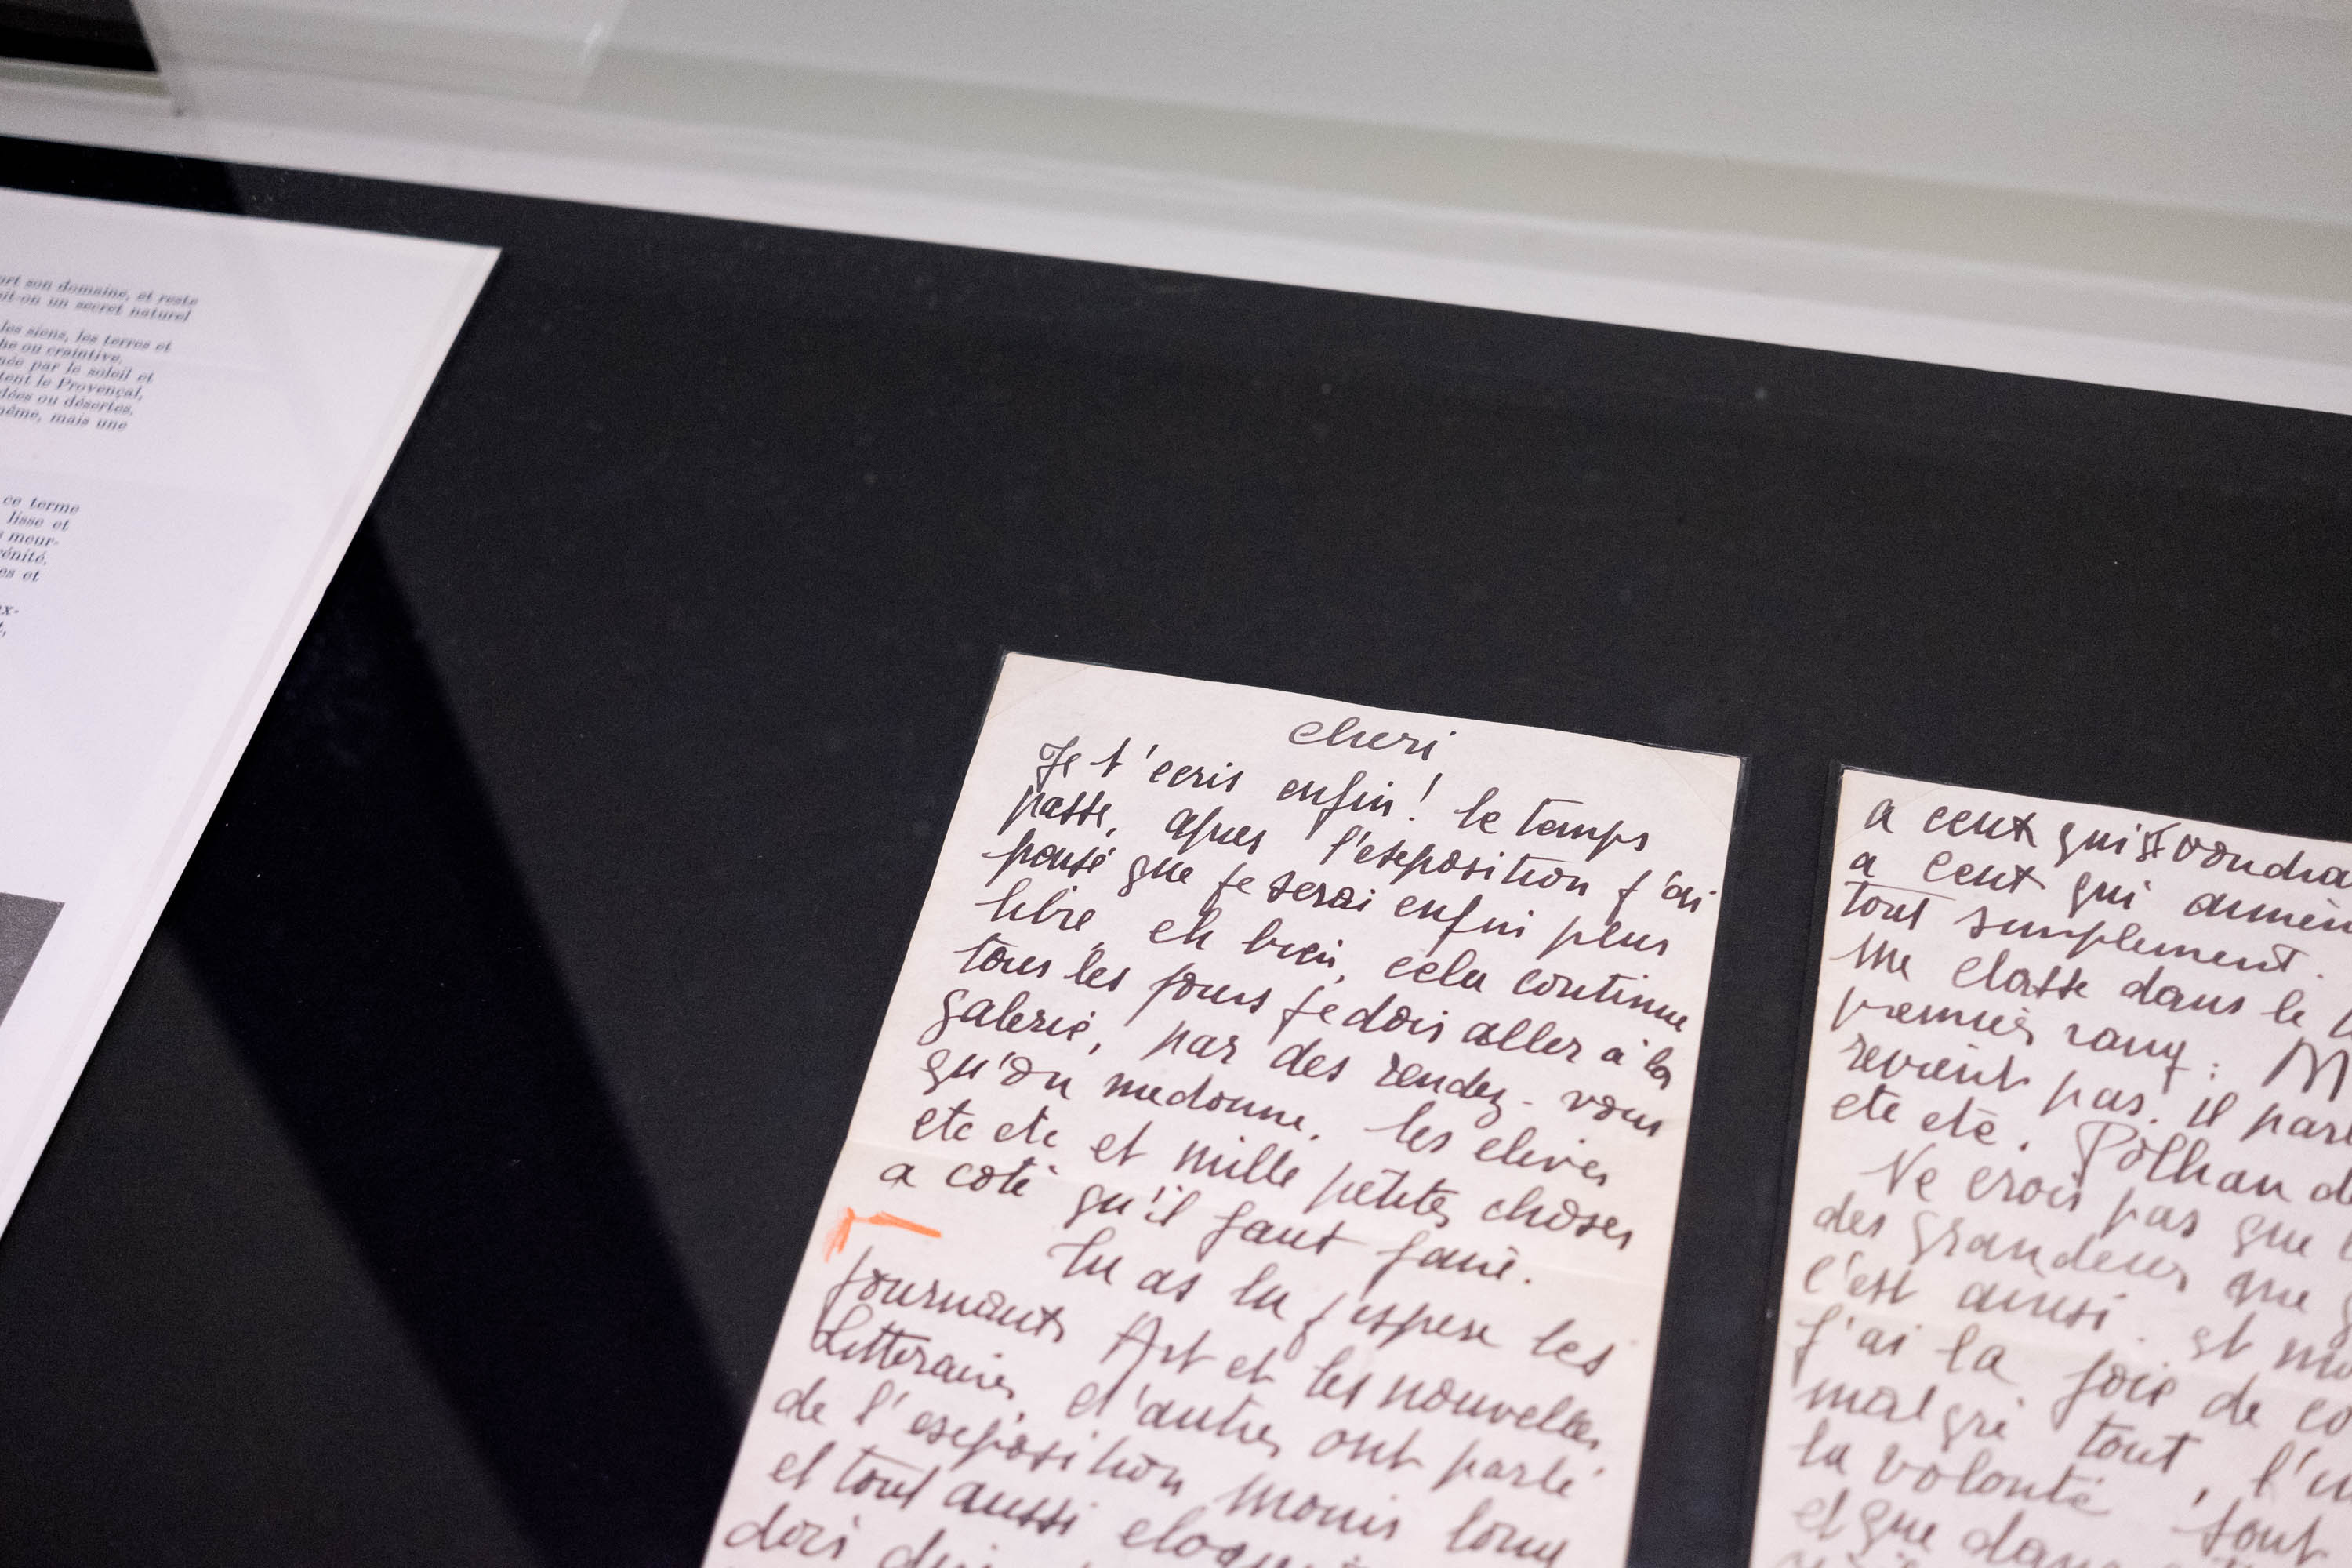 son domaine, et reste
un secret naturel
les siens, les terres et
ou craintive.
par le soleil et
le Provençal,
ou désertes,
mais une
ce terme
lisse et
et
cheri
Je t'ecris enfin! le temps
passe, apres l'exposition j'ai
pensé que je serai enfin plus
libre, eh bien, cela continue
tous les jours je dois aller a la
galerie, par des rendez-vous
qu'on me donne. les eleves
etc etc et mille petites choses
a coté qu'il faut faire.
Tu as lu j'espere les
journaux Art et les nouvelles
Litteraires, d'autres ont parlé
de l'exposition moins long
et tout aussi
dois
a ceux qui voudra
a ceux qui
tout simplement.
me classe dans le
premier rang: M
revient pas. il
etc etc.
Ne crois pas que
des grandeurs me
c'est ainsi. et
j'ai la joie de
malgré tout, l'
la volonté, tout
et que dans